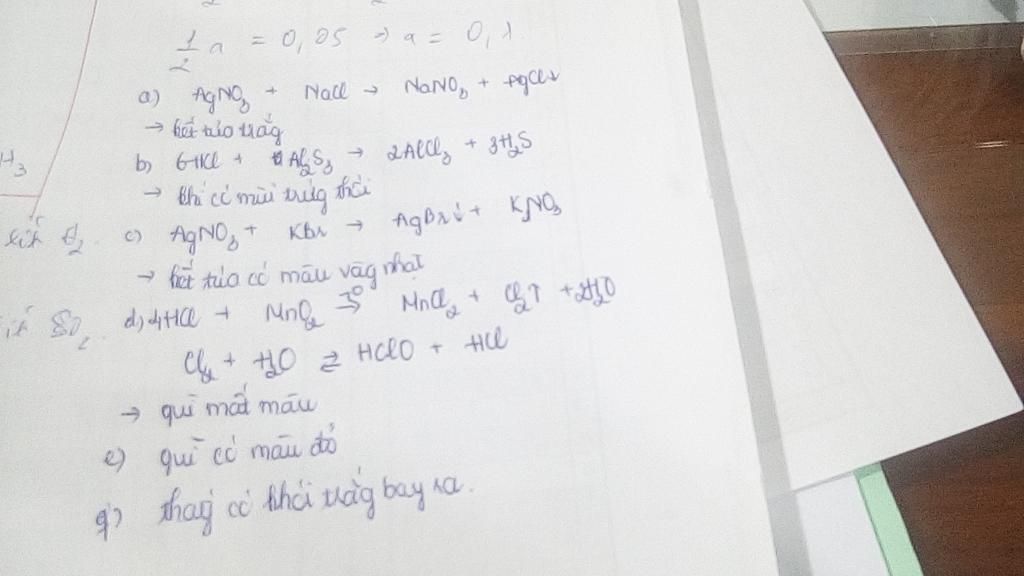 1/2 a = 0,05 → a = 0,1
a) AgNO3 + NaCl → NaNO3 + AgCl↓
→ kết tủa trắg
H3
b) 6HCl + Al2S3 → 2AlCl3 + 3H2S
→ khí có mùi trứg thối
c) AgNO3 + KBr → AgBr↓ + KNO3
→ kết tủa có màu vàg nhạt
SO2
d) 4HCl + MnO2 t° → MnCl2 + Cl2↑ + 2H2O
Cl2 + H2O ⇄ HClO + HCl
→ quì mất màu
e) quì có màu đỏ
g) thấy có khói trắg bay ra.